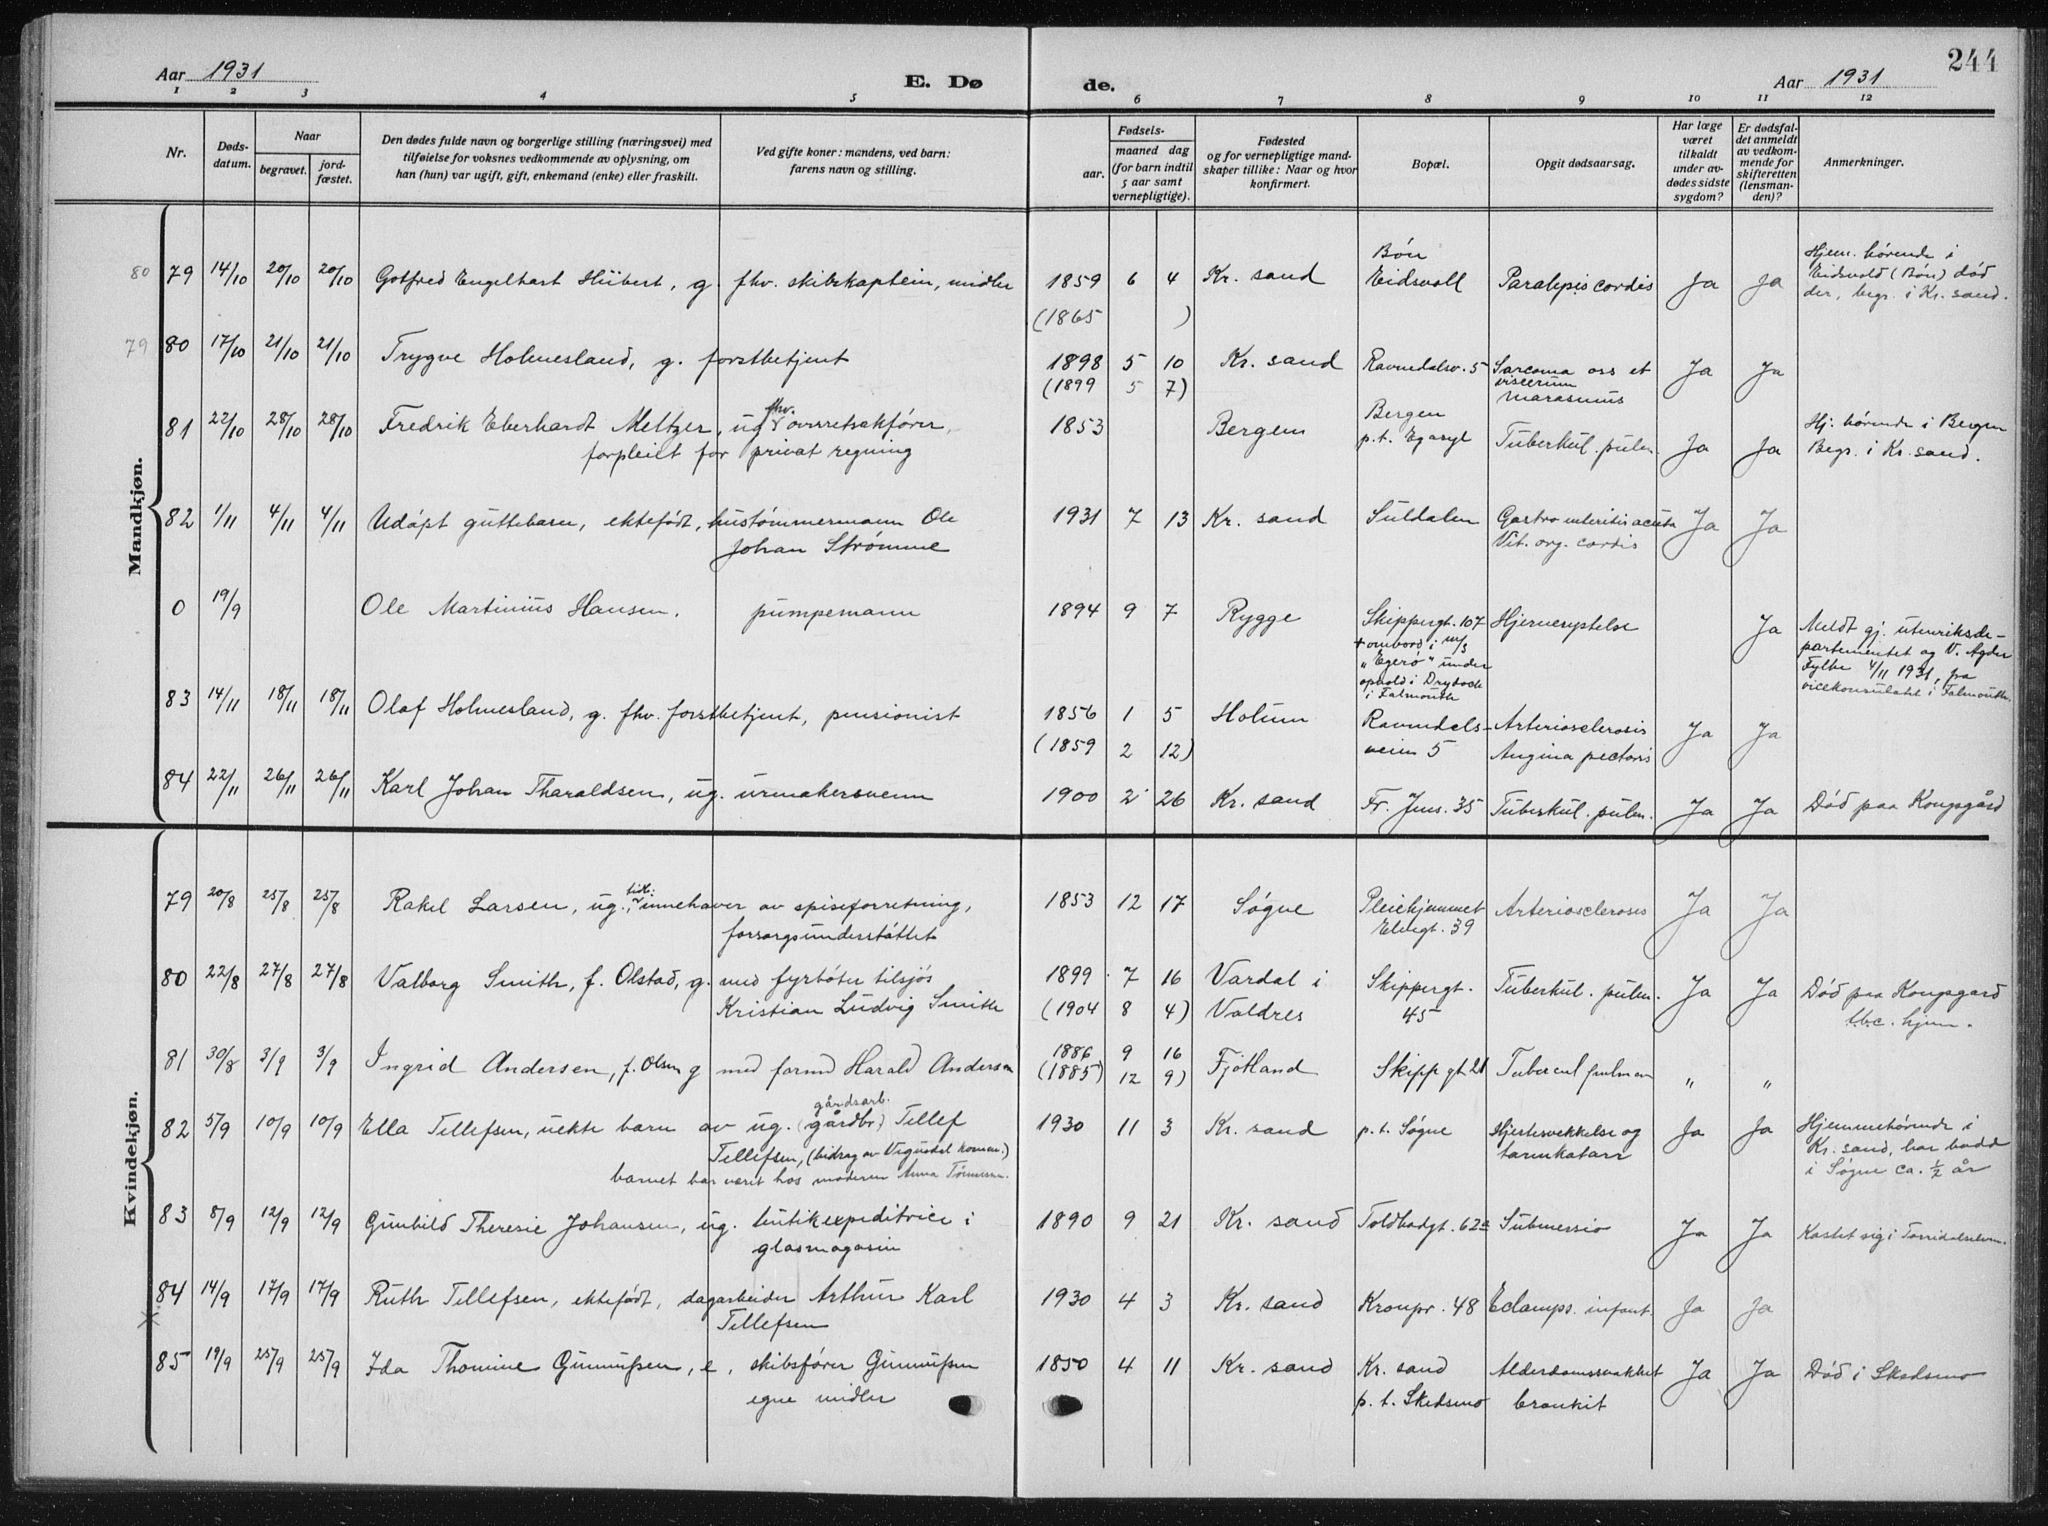 244
Aar 1931
E. Dø
de.
Aar 1931
1 2 3 4 5 6 7 8 9 10 11 12
Nr.
Døds-
datum.
Naar
begravet.
jord-
fæstet.
Den dødes fulde navn og borgerlige stilling (næringsvei) med
tilføielse for voksnes vedkommende av oplysning, om
han (hun) var ugift, gift, enkemand (enke) eller fraskilt.
Ved gifte koner: mandens, ved barn:
farens navn og stilling.
Fødsels-
aar.
maaned dag
(for barn indtil
5 aar samt
vernepligtige).
Fødested
og for vernepligtige mand-
skaper tillike: Naar og hvor
konfirmert.
Bopæl.
Opgit dødsaarsag.
Har læge
været
tilkaldt
under av-
dødes sidste
sygdom?
Er dødsfal-
det anmeldt
av vedkom-
mende for
skifteretten
(lensman-
den)?
Anmerkninger.
Mandkjøn.
80 79 14/10 20/10 20/10 Gotfred Engelhart Hübert, g. fhv. skibskaptein, midler 1859 6 4 Kr. sand Bøn Eidsvoll Paralysis cordis Ja Ja Hjem. hørende i
Eidsvold (Bøn) død
der, begr. i Kr. sand.
(1865 )
79 80 17/10 21/10 21/10 Trygve Holmesland, g. forstbetjent 1898 5 10 Kr. sand Ravnedalsv. 5 Sarcoma oss et Ja Ja
(1899 5 7) viscerum
marasmus
81 22/10 28/10 28/10 Fredrik Eberhardt Meltzer, ug. fhv. overretsakfører, 1853 Bergen Bergen
p. t. Egasyl Tuberkul. pulm. Ja Ja Hj. hørende i Bergen
forpleiet for privat regning Begr. i Kr. sand.
82 1/11 4/11 4/11 Udøpt guttebarn, ektefødt, hustømmermann Ole 1931 7 13 Kr. sand Suldalen Gastro enteritis acuta Ja Ja
Johan Strømme Vit. org. cordis
0 19/9 Ole Martinius Hansen. pumpemann 1894 9 7 Rygge Skippergt. 107 Hjernerystelse Ja Meldt gj. utenriksde-
+ ombord i m/s partementet og V. Agder
"Egerø" under Fylke 4/11 1931, fra
ophold i Drydock vicekonsulatet i Falmouth.
i Falmouth
83 14/11 18/11 18/11 Olaf Holmesland, g. fhv. forstbetjent, pensionist 1856 1 5 Holum Ravnedals- Arteriosclerosis Ja Ja
(1859 2 12) veien 5 Angina pectoris
84 22/11 26/11 26/11 Karl Johan Tharaldsen, ug. urmakersvenn 1900 2 26 Kr. sand Fr. Jens. 35 Tuberkul. pulm. Ja Ja Død paa Kongsgård
Kvindekjøn.
79 20/8 25/8 25/8 Rakel Larsen, ug., tidl. innehaver av spiseforretning, 1853 12 17 Søgne Pleiehjemmet Arteriosclerosis Ja Ja
forsorgsunderstøttet Elvegt. 39
80 22/8 27/8 27/8 Valborg Smith, f. Olstad, g. med fyrbøter tilsjøs 1899 7 16 Vardal i Skippergt. Tuberkul. pulm. Ja Ja Død paa Kongsgard
Kristian Ludvig Smith (1904 8 4) Valdres 45 tbc. hjem.
81 30/8 3/9 3/9 Ingrid Andersen, f. Olsen g med formd Harald Andersen 1886 9 16 Fjotland Skippgt 21 Tubercul pulmon " "
(1885) 12 9)
82 5/9 10/9 10/9 Ella Tellefsen, uekte barn av ug. (gårdbr) gårdsarb. Tellef 1930 11 3 Kr. sand p. t. Søgne Hjertesvekkelse og Ja Ja Hjemmehørende i
Tellefsen, (bidrag av Vigusdal kommn.) tarmkatarr Kr. sand, har bodd
barnet har været hos moderen Anna i Søgne ca. ½ år
83 8/9 12/9 12/9 Gunhild Theresie Johansen, ug. butikexpeditrice i 1890 9 21 Kr. sand Toldbodgt. 62a Submersio Ja Ja Kastet sig i Torridalselven.
glasmagasin
84 14/9 17/9 17/9 Ruth Tellefsen, ektefødt, dagarbeider Arthur Karl 1930 4 3 Kr. sand Kronpr. 48 Eclamps. infant. Ja Ja
Tellefsen
85 19/9 25/9 25/9 Ida Thomine Gunnufsen, e, skibsfører Gunnufsen 1850 4 11 Kr. sand Kr. sand Alderdomssvakhet Ja Ja Død i Skedsmo
egne midler p. t. Skedsmo bronkit